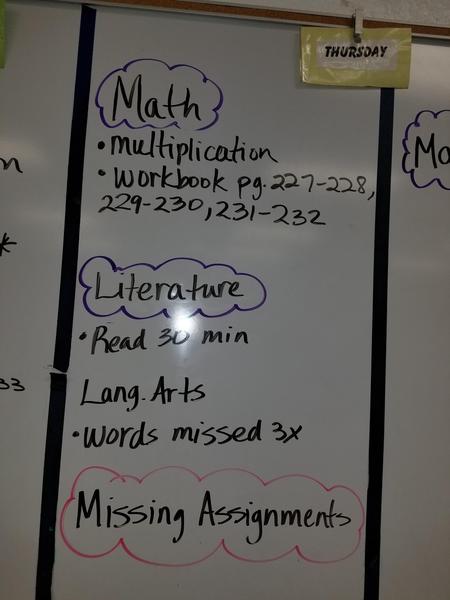 THURSDAY
Math
• multiplication
• workbook pg. 227-228,
229-230, 231-232
Literature
• Read 30 min
Lang. Arts
• words missed 3x
Missing Assignments
33